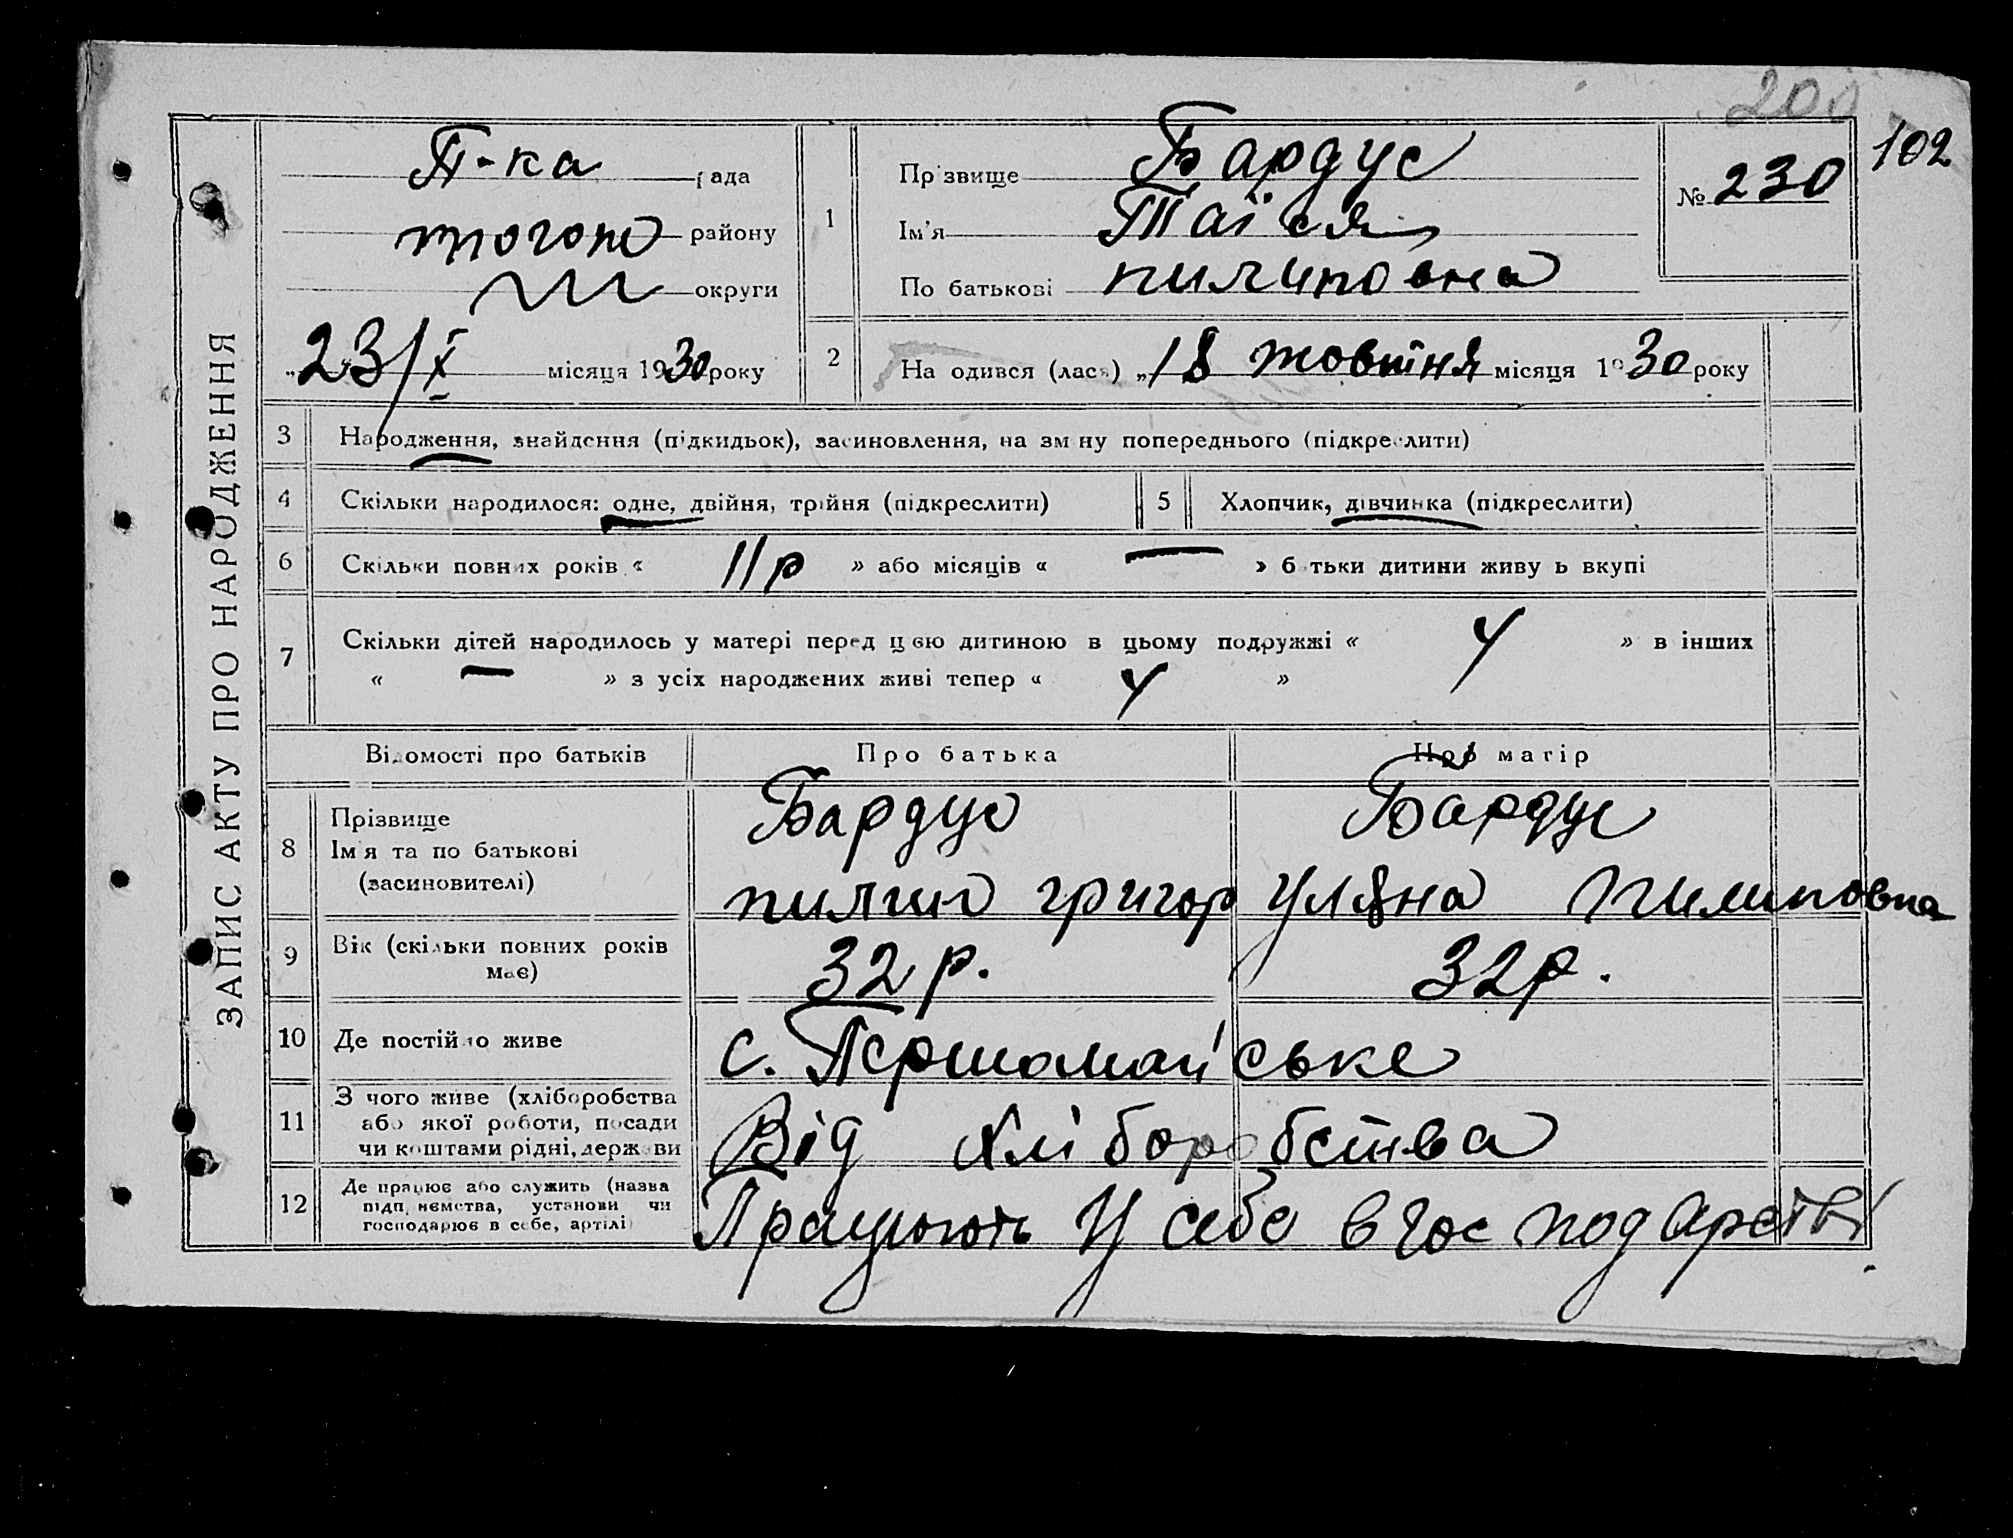 200
102
ЗАПИС АКТУ ПРО НАРОДЖЕННЯ
П-ка рада
того ж району
округи
„23/X місяця 1930 року
1 Прізвище Бардус
Ім'я Таїся
По батькові пилиповна
№ 230
2 Народився (лась) „18 жовтня місяця 1930 року
3 Народження, знайдення (підкидьок), засиновлення, на зміну попереднього (підкреслити)
4 Скільки народилося: одне, двійня, трійня (підкреслити) 5 Хлопчик, дівчинка (підкреслити)
6 Скільки повних років « 11 р » або місяців « — » батьки дитини живуть вкупі
7 Скільки дітей народилось у матері перед цією дитиною в цьому подружжі « 4 » в інших
« — » з усіх народжених живі тепер « 4 »
Відомості про батьків Про батька Про матір
8 Прізвище
Ім'я та по батькові
(засиновителі)
Бардус
пилип григор
Бардус
уляна Пилиповна
9 Вік (скільки повних років
має)
32 р. 32 р.
10 Де постійно живе с. Першомайське
11 З чого живе (хліборобства
або якої роботи, посади
чи коштами рідні, держави
Від хліборобства
12 Де працює або служить (назва
підприємства, установи чи
господарює в себе, артілі)
Працюють У себе в господарстві.